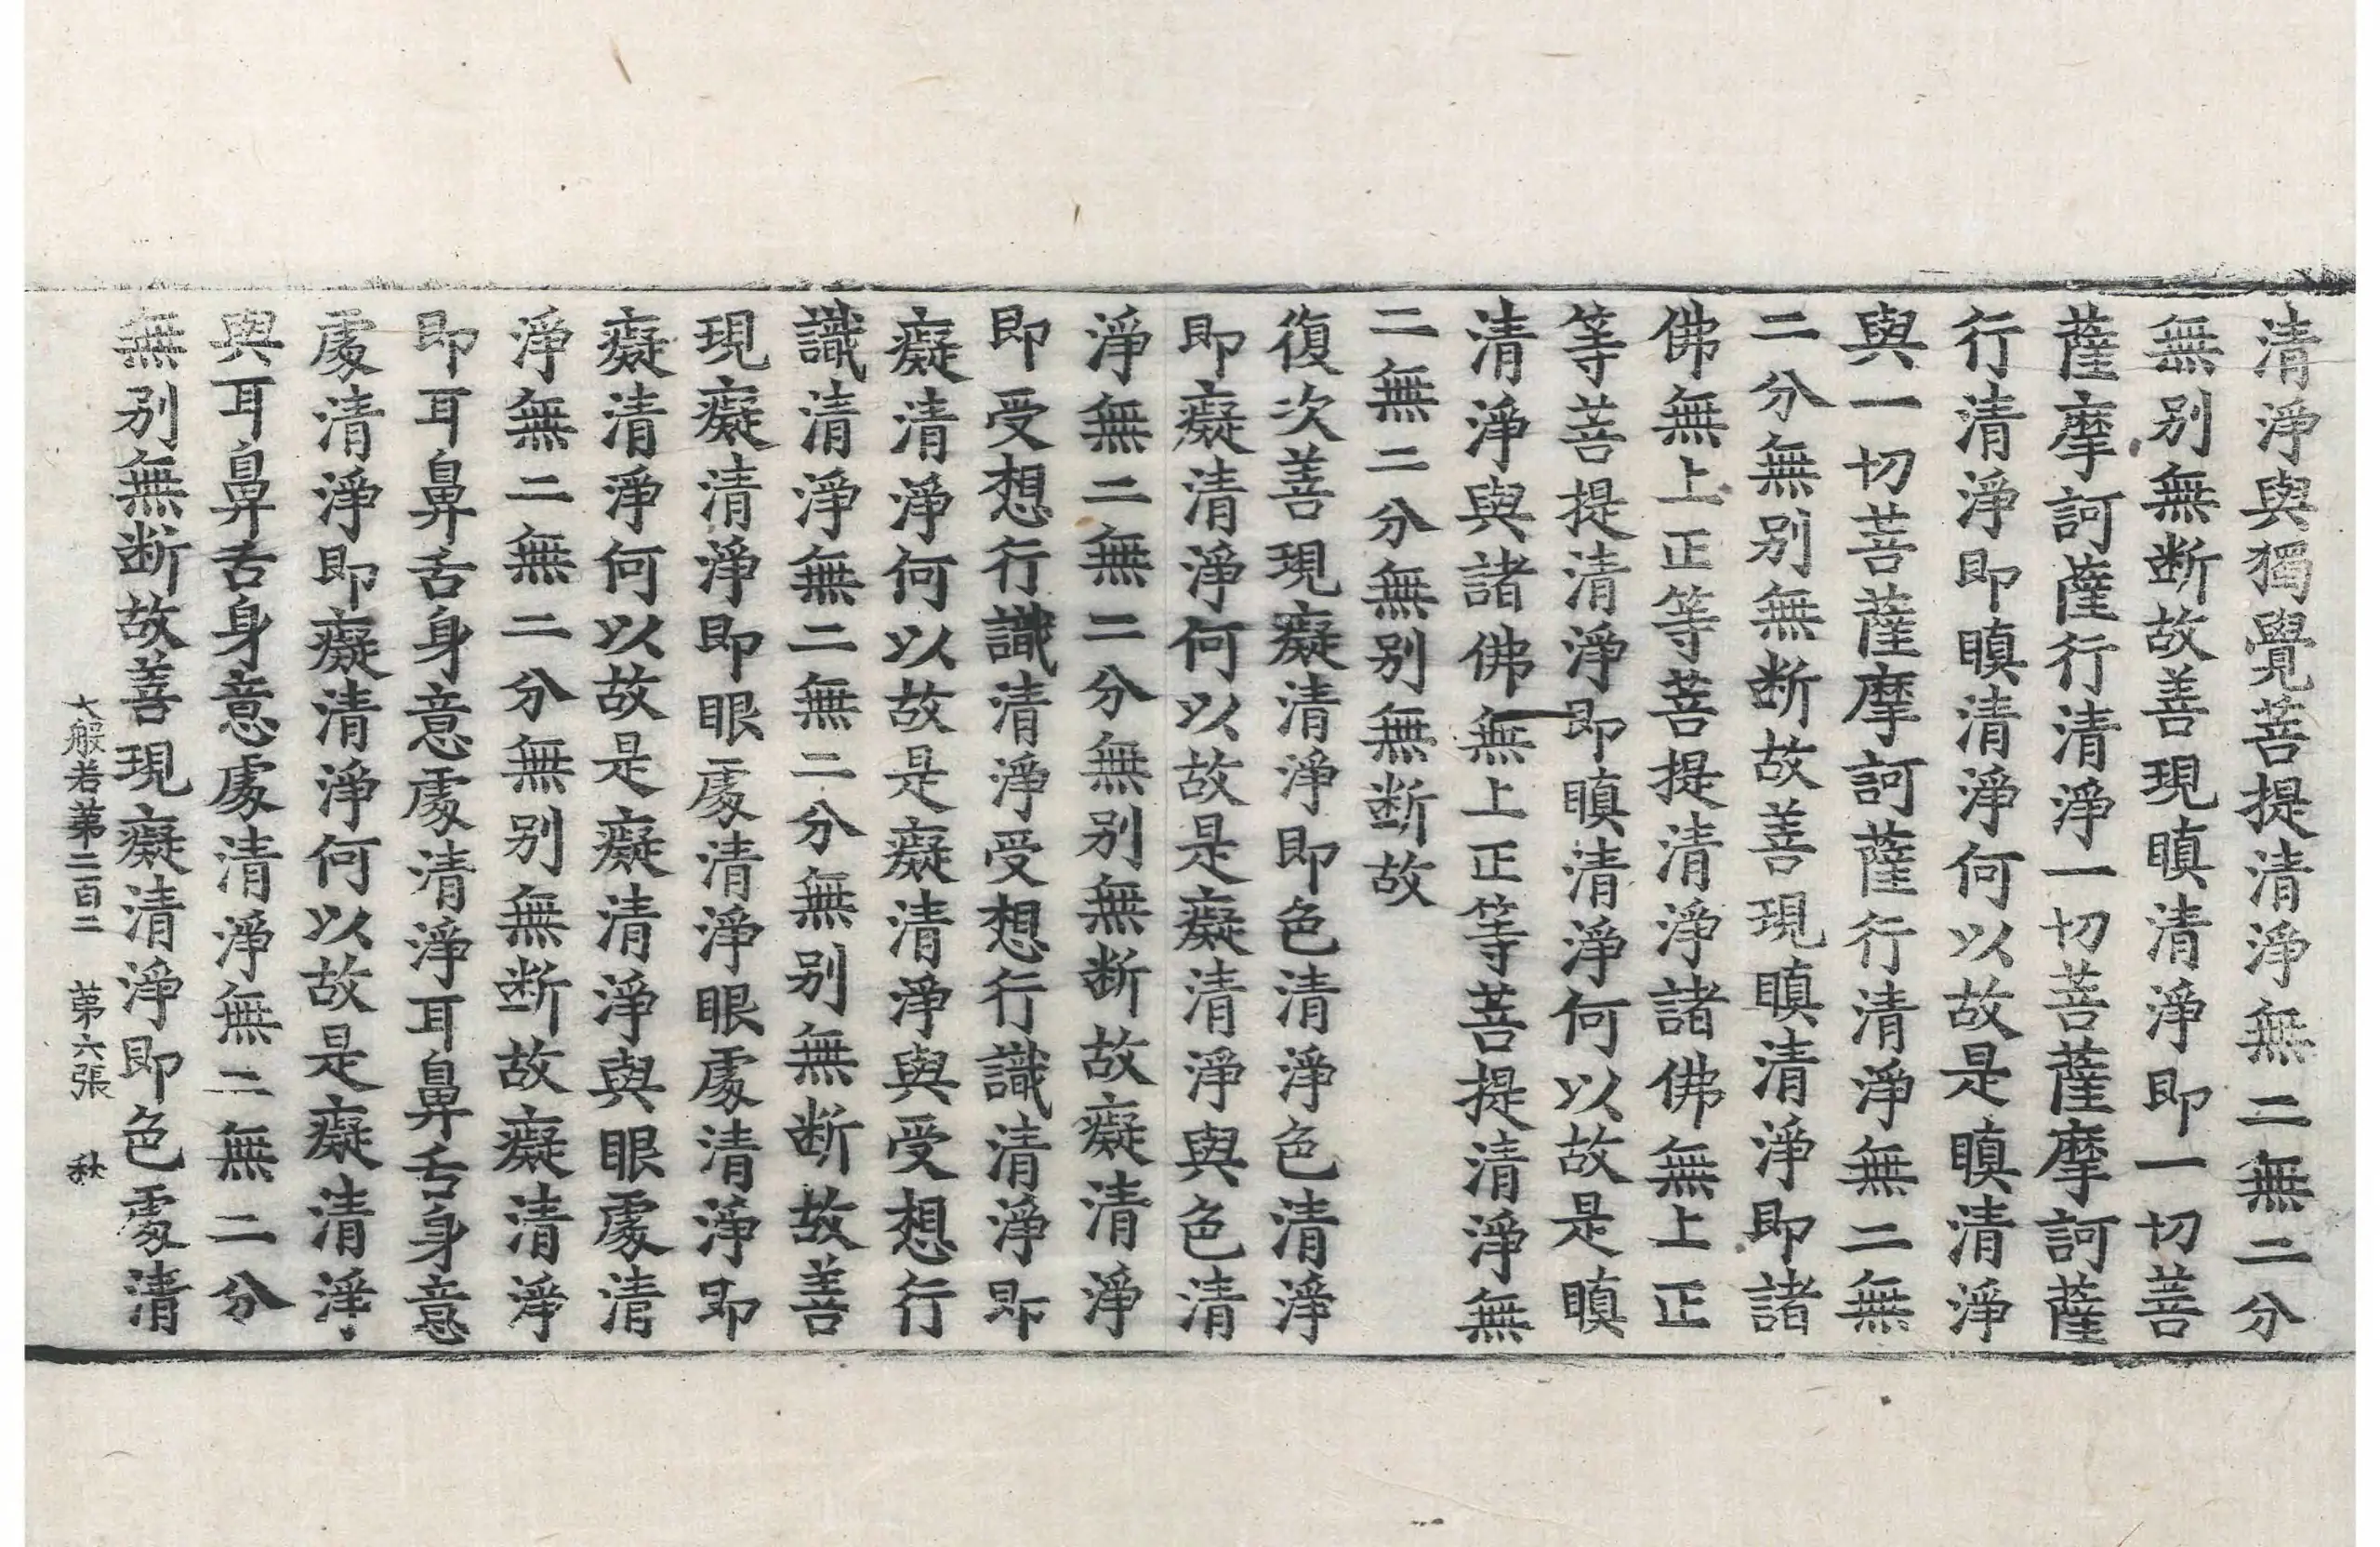 清淨與獨覺菩提清淨無二無二分
無別無断故善現瞋清淨即一切菩
薩摩訶薩行清淨一切菩薩摩訶薩
行清淨即瞋清淨何以故是瞋清淨
與一切菩薩摩訶薩行清淨無二無
二分無別無断故善現瞋清淨即諸
佛無上正等菩提清淨諸佛無上正
等菩提清淨即瞋清淨何以故是瞋
清淨與諸佛無上正等菩提清淨無
二無二分無別無断故
復次善現癡清淨即色清淨色清淨
即癡清淨何以故是癡清淨與色清
淨無二無二分無別無断故癡清淨
即受想行識清淨受想行識清淨即
癡清淨何以故是癡清淨與受想行
識清淨無二無二分無別無断故善
現癡清淨即眼處清淨眼處清淨即
癡清淨何以故是癡清淨與眼處清
淨無二無二分無別無断故癡清淨
即耳鼻舌身意處清淨耳鼻舌身意
處清淨即癡清淨何以故是癡清淨
與耳鼻舌身意處清淨無二無二分
無別無断故善現癡清淨即色處清
大般若第二百二 第六張 秋